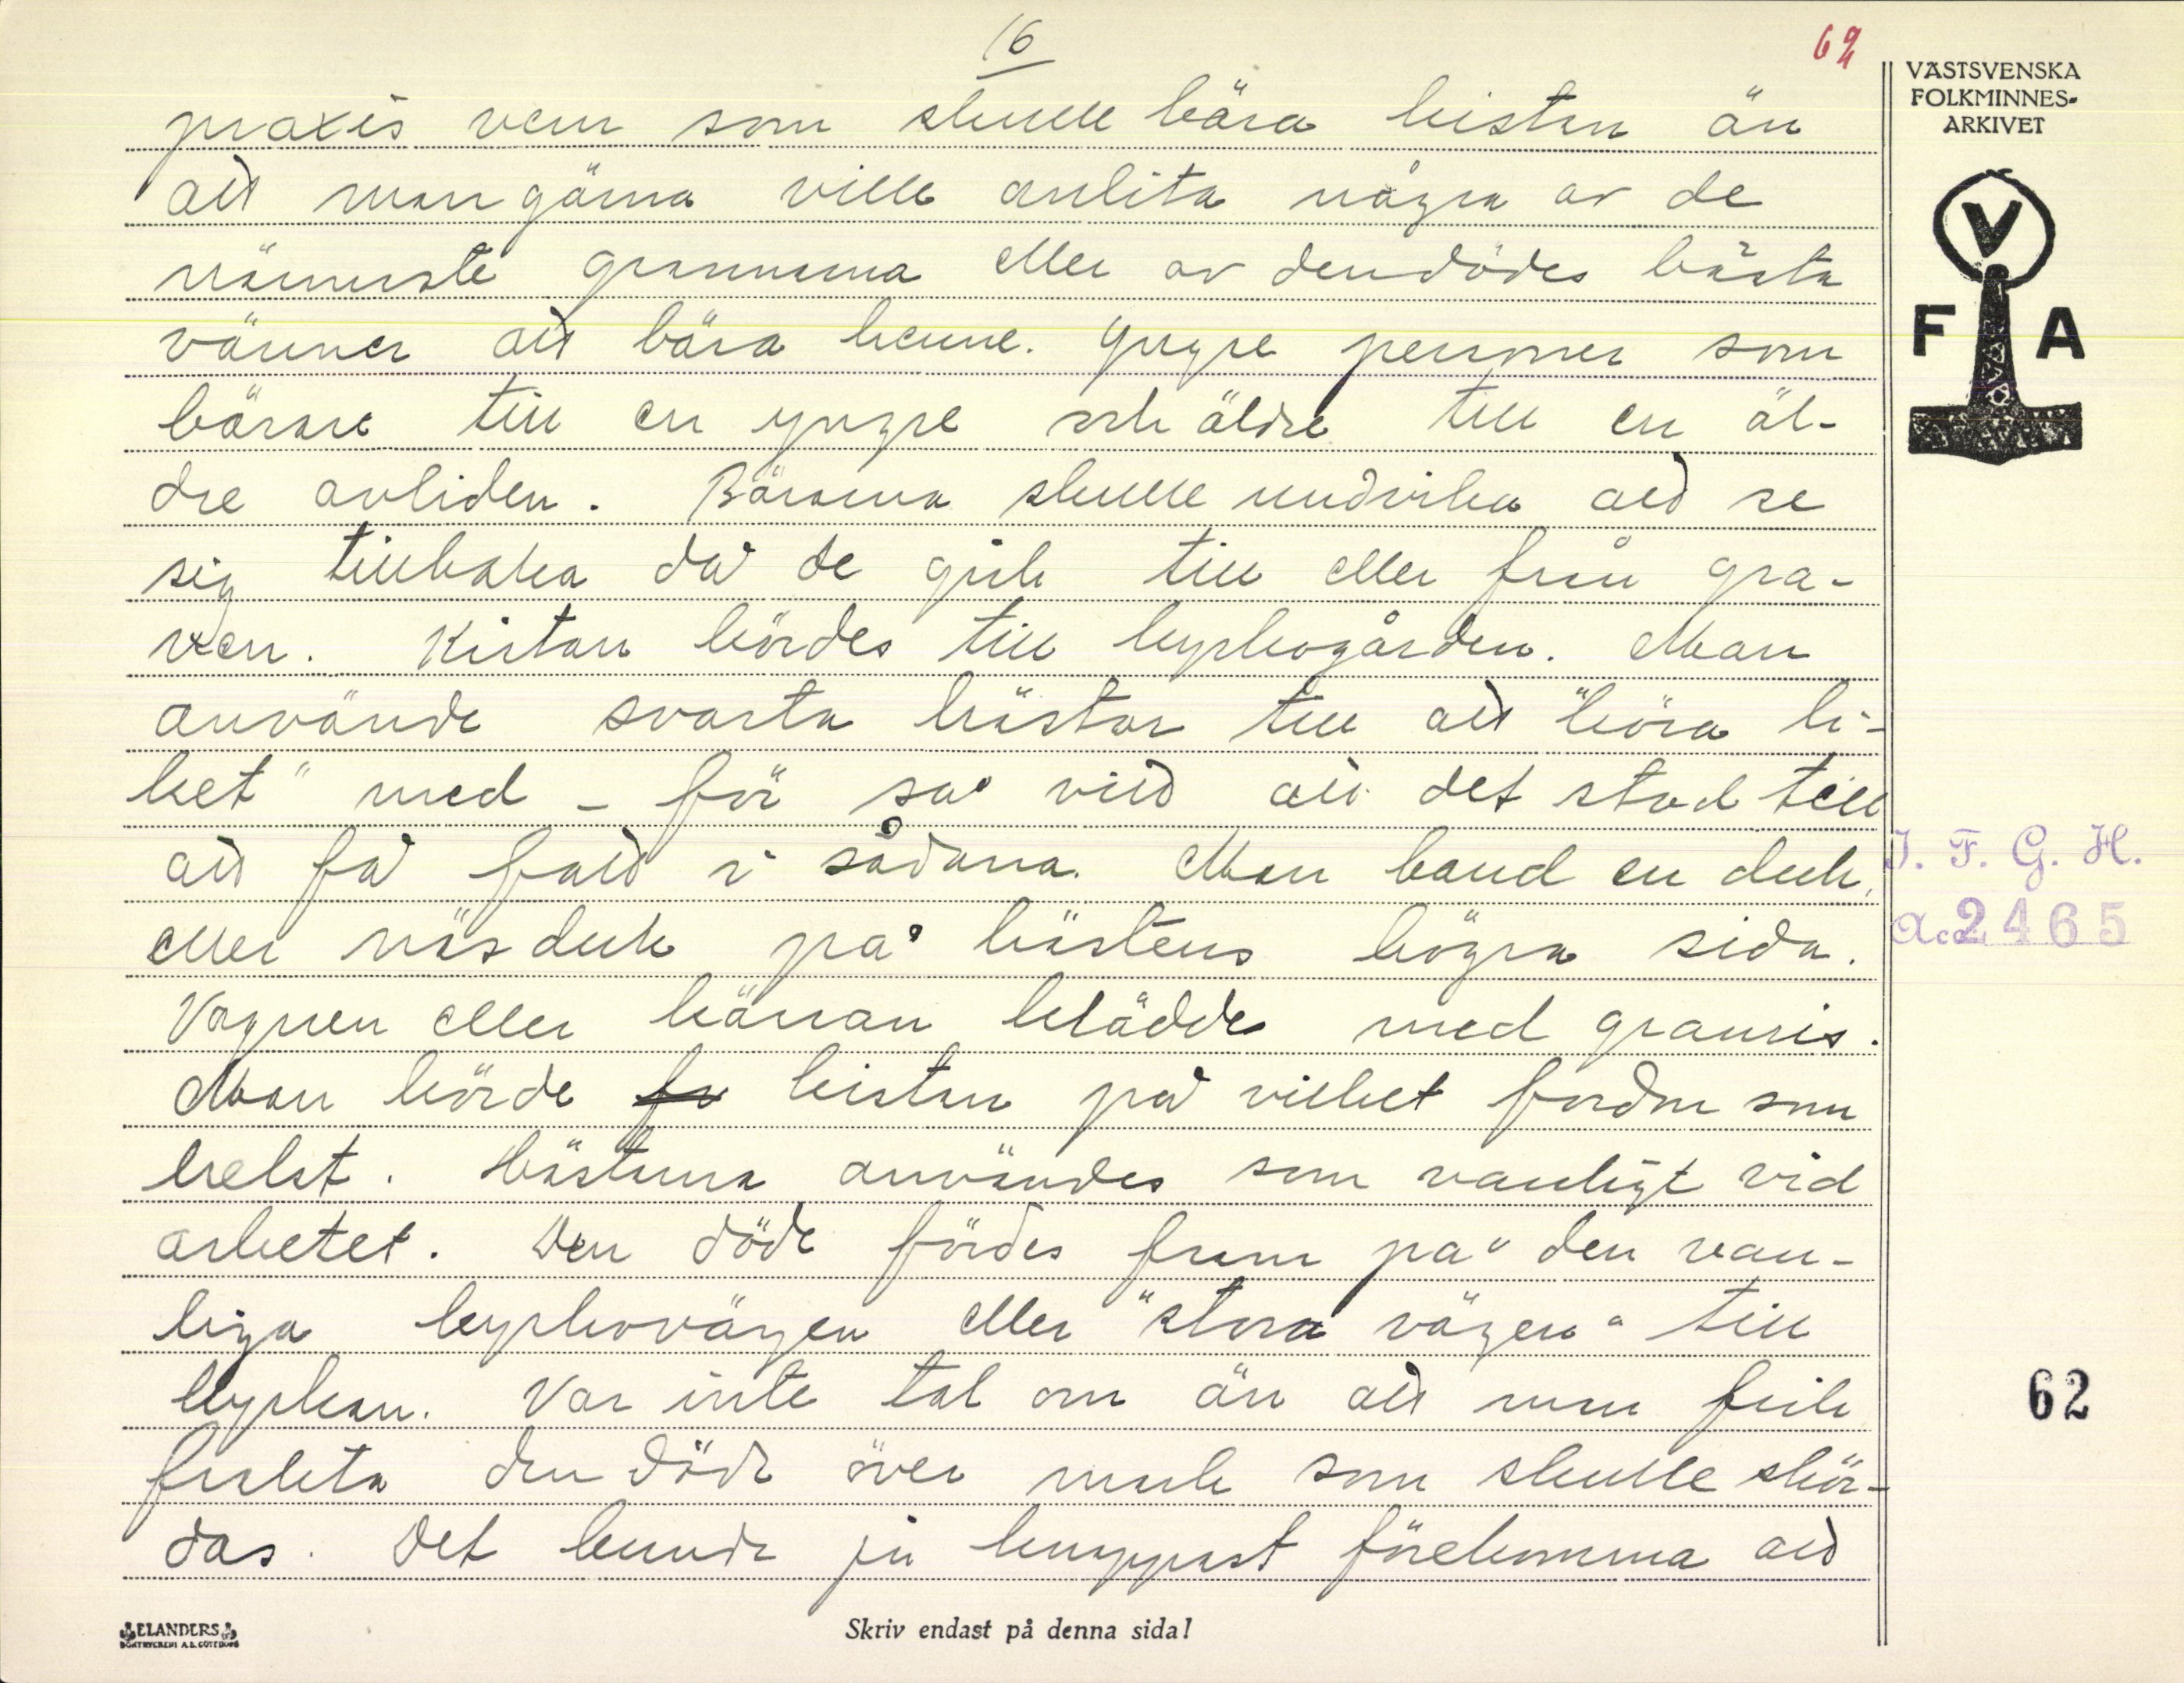 16
62
praxis vem som skulle bära kistan än
att man gärna ville anlita några av de
närmaste grannarna eller av den dödes bästa
vänner att bära henne. Yngre personer som
bärare till en yngre och äldre till en äl-
dre avliden. Bärarna skulle undvika att se
sig tillbaka då de gick till eller från gra-
ven. Kistan kördes till kyrkogården. Man
använde svarta hästar till att "köra li-
ket" med - för så vitt att det stod till
att få fatt i sådana. Man band en duk,
eller näsduk på hästens högra sida.
Vagnen eller kärran kläddes med granris.
Man körde kistan på vilket fordon som
helst. Hästarna användes som vanligt vid
arbetet. Den döde fördes fram på den van-
liga kyrkovägen eller "stora vägen" till
kyrkan. Var inte tal om än att man fick
frakta den döde över mark som skulle skör-
das. Det kunde ju knappast förekomma att
VÄSTSVENSKA
FOLKMINNES-
ARKIVET
V
F A
I. F. G. H.
Acc. 2465
62
ELANDERS
BOKTRYCKERI A.B. GÖTEBORG
Skriv endast på denna sida!